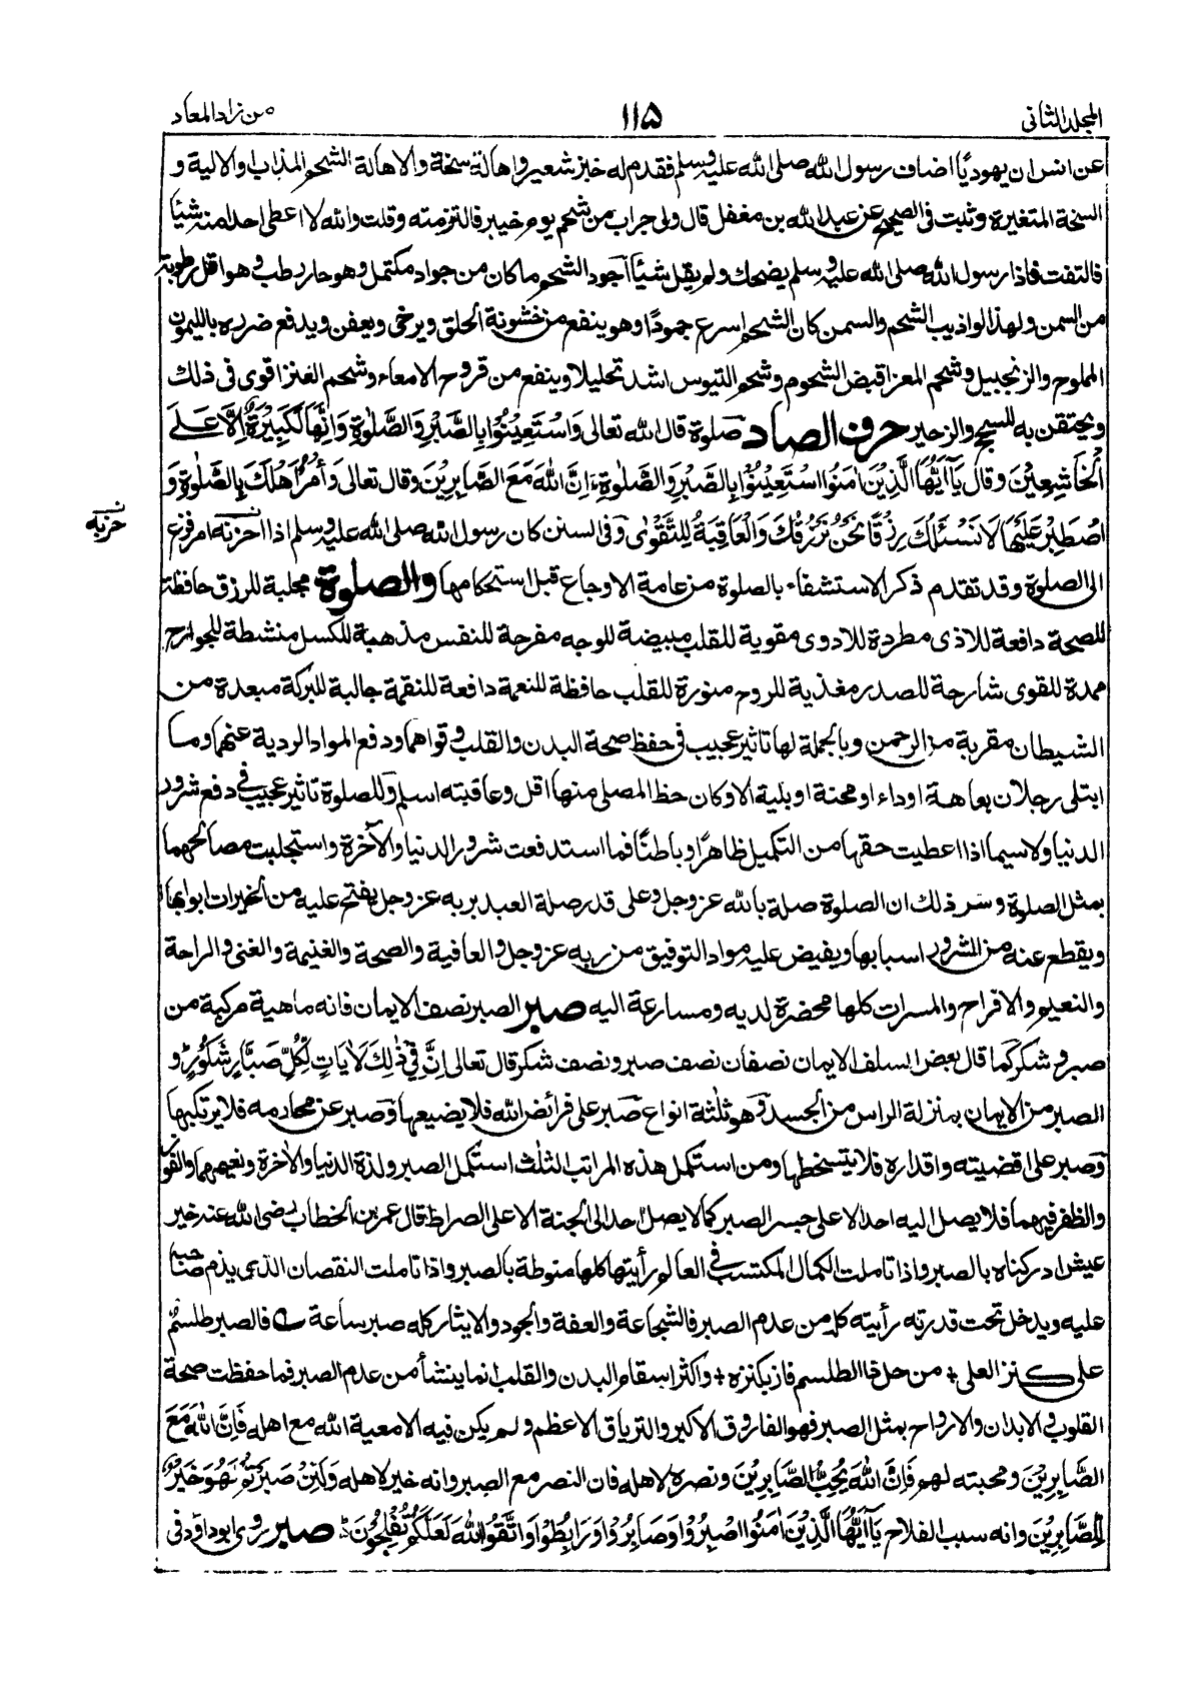 المجلد الثانى
١١٥
من زاد المعاد
عن انس ان يهوديًا اضاف رسول الله صلى الله عليه وسلم فقدم له خبز شعير واهالة سنخة والاهالة الشحم المذاب والالية و
السنخة المتغيرة وثبت فى الصحيح عن عبد الله بن مغفل قال ولى جراب من شحم يوم خيبر فالتزمته وقلت والله لا اعطى احدا منه شيئا
فالتفت فاذا رسول الله صلى الله عليه وسلم يضحك ولم يقل شيئا اجود الشحم ما كان من جواد مكتمل وهو حار رطب وهو اقل رطوبة
من السمن ولهذا لو اذيب الشحم والسمن كان الشحم اسرع جمودًا وهو ينفع من خشونة الحلق ويرخى ويعفن ويدفع ضرره بالليمون
المملوح والزنجبيل وشحم المعز اقبض الشحوم وشحم التيوس اشد تحليلا وينفع من قروح الامعاء وشحم العنز اقوى فى ذلك
ويحتقن به للسحج والزحير حرف الصاد صلوة قال الله تعالى وَاسْتَعِيْنُوْا بِالصَّبْرِ وَالصَّلٰوةِ وَاِنَّهَا لَكَبِيْرَةٌ اِلَّا عَلَى
الْخَاشِعِيْنَ وقال يَآ اَيُّهَا الَّذِيْنَ اٰمَنُوا اسْتَعِيْنُوْا بِالصَّبْرِ وَالصَّلٰوةِ اِنَّ اللهَ مَعَ الصَّابِرِيْنَ وقال تعالى وَأْمُرْ اَهْلَكَ بِالصَّلٰوةِ وَ
اصْطَبِرْ عَلَيْهَا لَا نَسْئَلُكَ رِزْقًا نَحْنُ نَرْزُقُكَ وَالْعَاقِبَةُ لِلتَّقْوٰى وفى السنن كان رسول الله صلى الله عليه وسلم اذا احزنه امر فزع
حزبه
الى الصلوة وقد تقدم ذكر الاستشفاء بالصلوة من عامة الاوجاع قبل استحكامها والصلوة مجلبة للرزق حافظة
للصحة دافعة للاذى مطردة للادوى مقوية للقلب مبيضة للوجه مفرحة للنفس مذهبة للكسل منشطة للجوارح
ممدة للقوى شارحة للصدر مغذية للروح منورة للقلب حافظة للنعمة دافعة للنقمة جالبة للبركة مبعدة من
الشيطان مقربة من الرحمن وبالجملة لها تاثير عجيب فى حفظ صحة البدن والقلب وقواهما ودفع المواد الردية عنهما وما
ابتلى رجلان بعاهة او داء او محنة او بلية الا وكان حظ المصلى منها اقل وعاقبته اسلم وللصلوة تاثير عجيب فى دفع شرور
الدنيا ولاسيما اذا اعطيت حقها من التكميل ظاهرًا وباطنًا فما استدفعت شرور الدنيا والآخرة واستجلبت مصالحهما
بمثل الصلوة وسر ذلك ان الصلوة صلة بالله عز وجل وعلى قدر صلة العبد بربه عز وجل يفتح عليه من الخيرات ابوابها
ويقطع عنه من الشرور اسبابها ويفيض عليه مواد التوفيق من ربه عز وجل والعافية والصحة والغنيمة والغنى والراحة
والنعيم والافراح والمسرات كلها محضرة لديه ومسارعة اليه صبر الصبر نصف الايمان فانه ماهية مركبة من
صبر وشكر كما قال بعض السلف الايمان نصفان نصف صبر ونصف شكر قال تعالى اِنَّ فِىْ ذٰلِكَ لَاٰيَاتٍ لِّكُلِّ صَبَّارٍ شَكُوْرٍ و
الصبر من الايمان بمنزلة الراس من الجسد وهو ثلثة انواع صبر على فرائض الله فلا يضيعها وصبر عن محارمه فلا يرتكبها
وصبر على اقضيته واقداره فلا يتسخطها ومن استكمل هذه المراتب الثلث استكمل الصبر ولذة الدنيا والاخرة ونعيمهما والفوز
والظفر فيهما فلا يصل اليه احد الا على جسر الصبر كما لا يصل احد الى الجنة الا على الصراط قال عمر بن الخطاب رضى الله عنه خير
عيش ادركناه بالصبر واذا تاملت الكمال المكتسب فى العالم رأيتها كلها منوطة بالصبر واذا تاملت النقصان الذى يذم صاحبه
عليه ويدخل تحت قدرته رأيته كله من عدم الصبر فالشجاعة والعفة والجود والايثار كله صبر ساعة فالصبر طلسم
على كنز العلى + من حل ذا الطلسم فاز بكنزه + واكثر اسقام البدن والقلب انما ينشأ من عدم الصبر فما حفظت صحة
القلوب والابدان والارواح بمثل الصبر فهو الفاروق الاكبر والترياق الاعظم ولو لم يكن فيه الا معية الله مع اهله فَاِنَّ اللهَ مَعَ
الصَّابِرِيْنَ ومحبته لهم فَاِنَّ اللهَ يُحِبُّ الصَّابِرِيْنَ ونصره لاهله فان النصر مع الصبر وانه خير لاهله وَلَئِنْ صَبَرْتُمْ لَهُوَ خَيْرٌ
لِّلصَّابِرِيْنَ وانه سبب الفلاح يَآ اَيُّهَا الَّذِيْنَ اٰمَنُوا اصْبِرُوْا وَصَابِرُوْا وَرَابِطُوْا وَاتَّقُوا اللهَ لَعَلَّكُمْ تُفْلِحُوْنَ صبر روى ابو داود فى